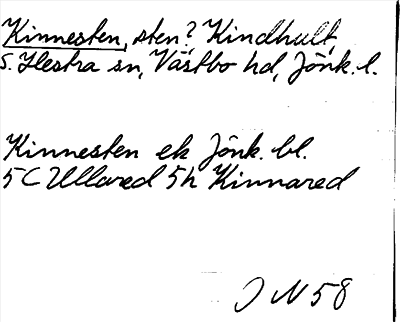 Kinnesten, sten? Kindhult,
S. Hestra sn, Västbo hd, Jönk. l.
Kinnesten ek Jönk. bl.
5C Ullared 5h Kinnared
J N 58